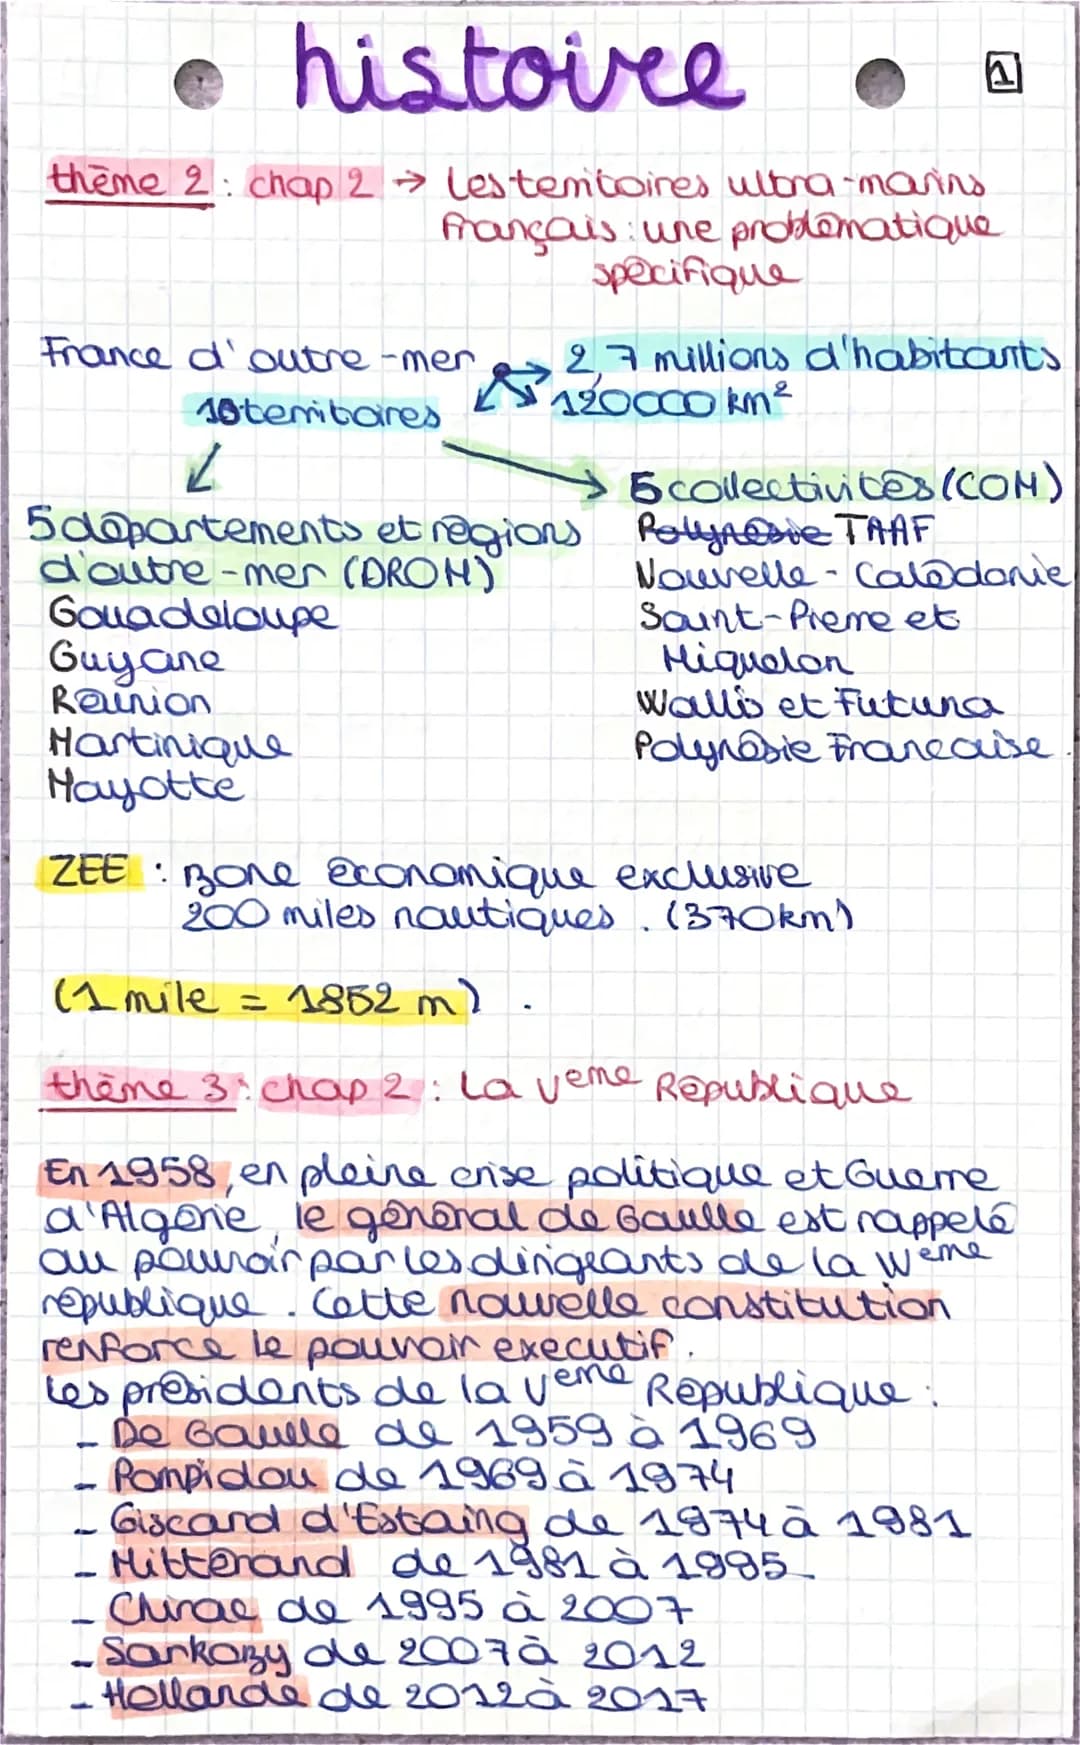 histoire
1
thème 2 : chap 2 → Les territoires ultra-marins
français : une problématique
spécifique
France d'outre-mer → 2,7 millions d'habitants
10 territoires
120000 km²
5 collectivités (COM)
5 départements et régions
d'outre-mer (DROM)
Gouadeloupe
Guyane
Réunion
Martinique
Mayotte
Polynésie TAAF
Nouvelle-Calédonie
Saint-Pierre et
Miquelon
Wallis et Futuna
Polynésie Francaise.
ZEE : zone économique exclusive
200 miles nautiques. (370km)
(1 mile = 1852 m).
thème 3 : chap 2 : La Veme République
En 1958, en pleine crise politique et Guerre
d'Algérie, le général de Gaulle est rappelé
au pouvoir par les dirigeants de la IVeme
république. Cette nouvelle constitution
renforce le pouvoir executif.
Les présidents de la Veme République :
- De Gaulle de 1959 à 1969
- Pompidou de 1969 à 1974
- Giscard d'Estaing de 1974 à 1981
- Mitterand de 1981 à 1995
- Chirac de 1995 à 2007
- Sarkozy de 2007 à 2012
- Hollande de 2012 à 2017